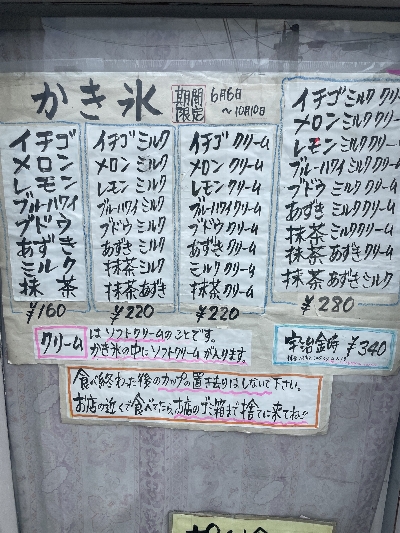 かき氷
期間限定
6月6日
〜10月10日
イチゴ
メロン
レモン
ブルーハワイ
ブドウ
あずき
ミルク
抹茶
¥160
イチゴ ミルク
メロン ミルク
レモン ミルク
ブルーハワイ ミルク
ブドウ ミルク
あずき ミルク
抹茶 ミルク
抹茶 あずき
¥220
イチゴ クリーム
メロン クリーム
レモン クリーム
ブルーハワイ クリーム
ブドウ クリーム
あずき クリーム
ミルク クリーム
抹茶 クリーム
¥220
イチゴ ミルク クリーム
メロン ミルク クリーム
レモン ミルク クリーム
ブルーハワイ ミルク クリーム
ブドウ ミルク クリーム
あずき ミルク クリーム
抹茶 ミルク クリーム
抹茶 あずき クリーム
抹茶 あずき ミルク
¥280
クリーム はソフトクリームのことです。
かき氷の中にソフトクリームが入ります。
宇治金時 ¥340
食べ終わった後のカップの置き去りはしないで下さい。
お店の近くで食べてたら、お店のゴミ箱まで捨てに来てね!!